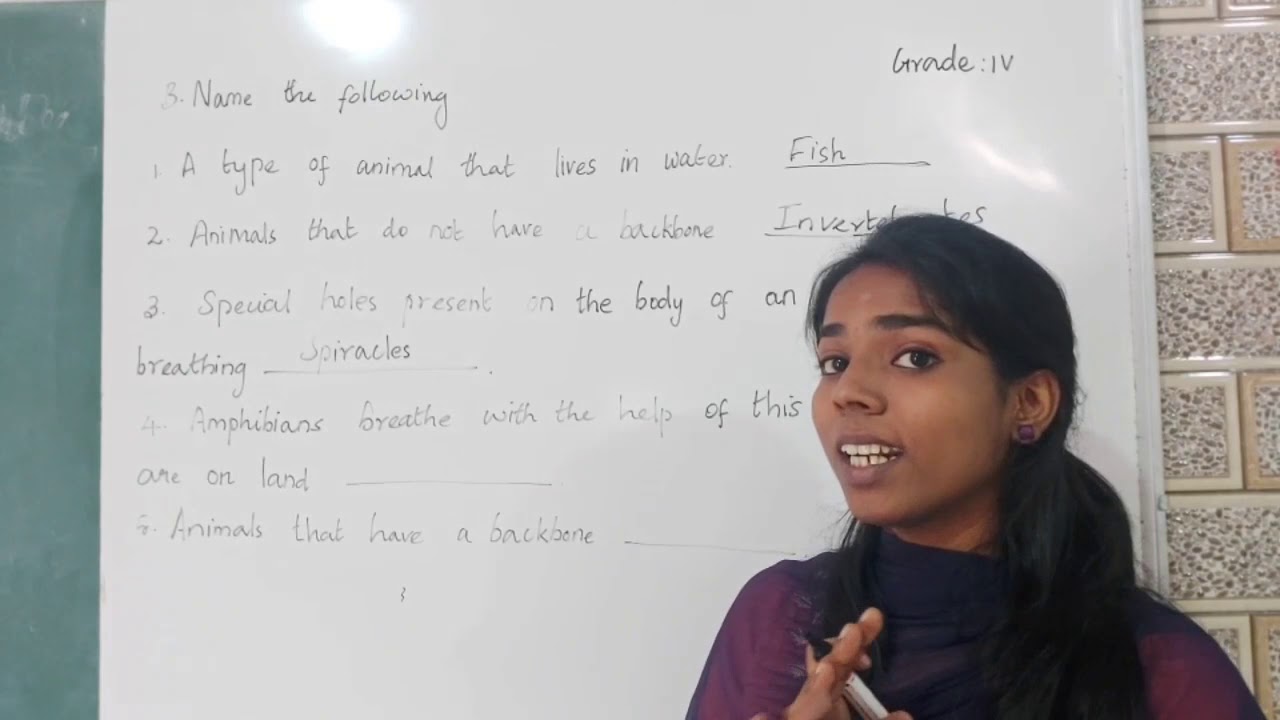 Grade : IV
3. Name the following
1. A type of animal that lives in water. Fish
2. Animals that do not have a backbone
3. Special holes present on the body of an
breathing Spiracles .
4. Amphibians breathe with the help of this
are on land
5. Animals that have a backbone